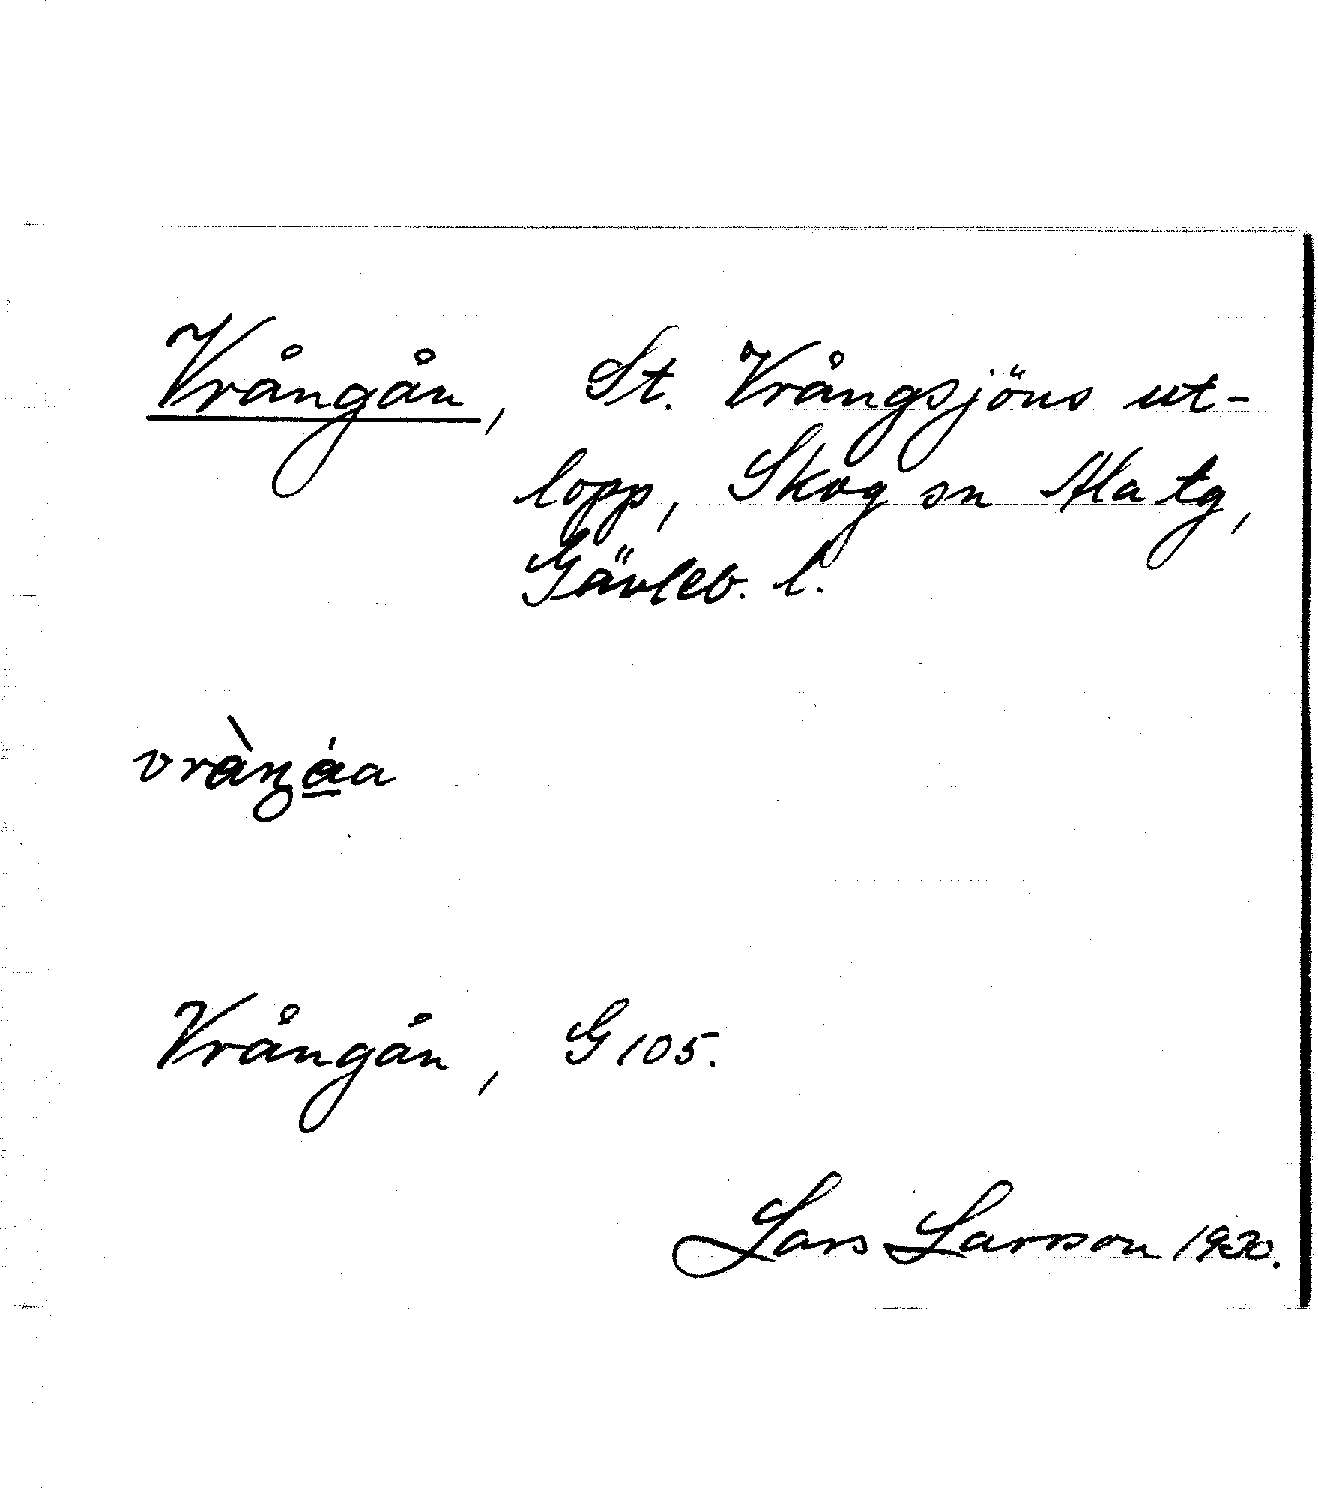 Vrångån, St. Vrångsjöns ut-
lopp, Skog sn Ala tg,
Gävleb. l.
vràŋáa
Vrångån, G 105.
Lars Larsson 1930.